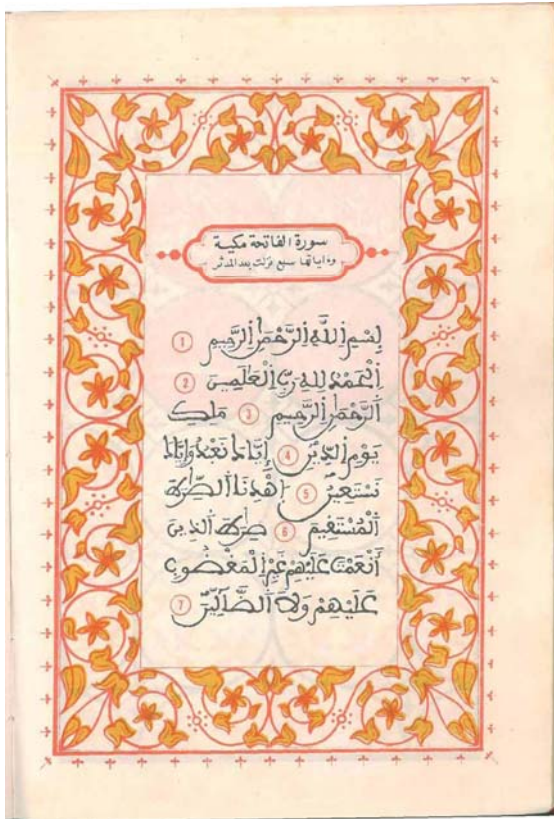 سورة الفاتحة مكية
وءاياتها سبع نزلت بعد المدثر
بِسْمِ اِ۬للَّهِ اِ۬لرَّحْمَٰنِ اِ۬لرَّحِيمِ 1
اَ۬لْحَمْدُ لِلهِ رَبِّ اِ۬لْعَٰلَمِينَ 2
اَ۬لرَّحْمَٰنِ اِ۬لرَّحِيمِ 3 مَلِكِ
يَوْمِ اِ۬لدِّينِ 4 إِيَّاكَ نَعْبُدُ وَإِيَّاكَ
نَسْتَعِينُ 5 اَ۪هْدِنَا اَ۬لصِّرَٰطَ
اَ۬لْمُسْتَقِيمَ 6 صِرَٰطَ اَ۬لذِينَ
أَنْعَمْتَ عَلَيْهِمْ غَيْرِ اِ۬لْمَغْضُوبِ
عَلَيْهِمْ وَلَا اَ۬لضَّآلِّينَ 7